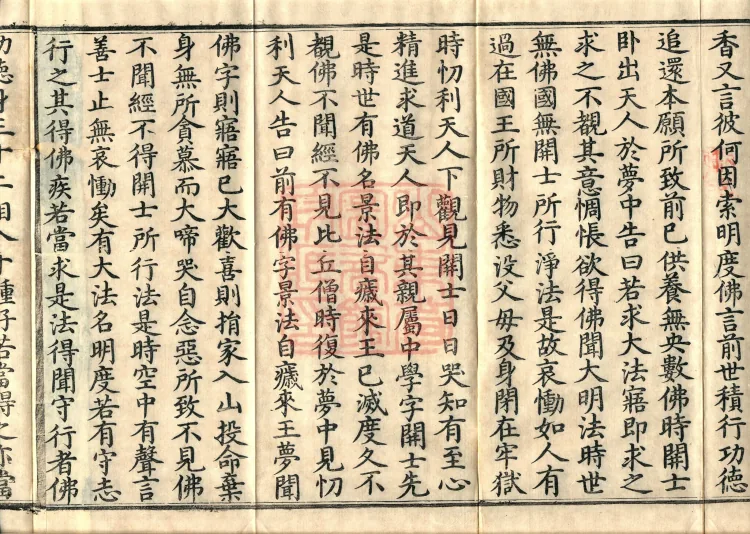 香又言彼何因索明度佛言前世積行功德
追還本願所致前已供養無央數佛時開士
卧出天人於夢中告曰若求大法寤即求之
求之不覩其意惆悵欲得佛聞大明法時世
無佛國無開士所行淨法是故哀慟如人有
過在國王所財物悉没父母及身閉在牢獄
時忉利天人下觀見開士日日哭知有至心
精進求道天人即於其親屬中學字開士先
是時世有佛名景法自穢來王已滅度久不
覩佛不聞經不見比丘僧時復於夢中見忉
利天人告曰前有佛字景法自穢來王夢聞
佛字則寤寤已大歡喜則捐家入山投命棄
身無所貪慕而大啼哭自念惡所致不見佛
不聞經不得開士所行法是時空中有聲言
善士止無哀慟矣有大法名明度若有守志
行之其得佛疾若當求是法得聞守行者佛
功德身三十二相八十種好若當得之亦當